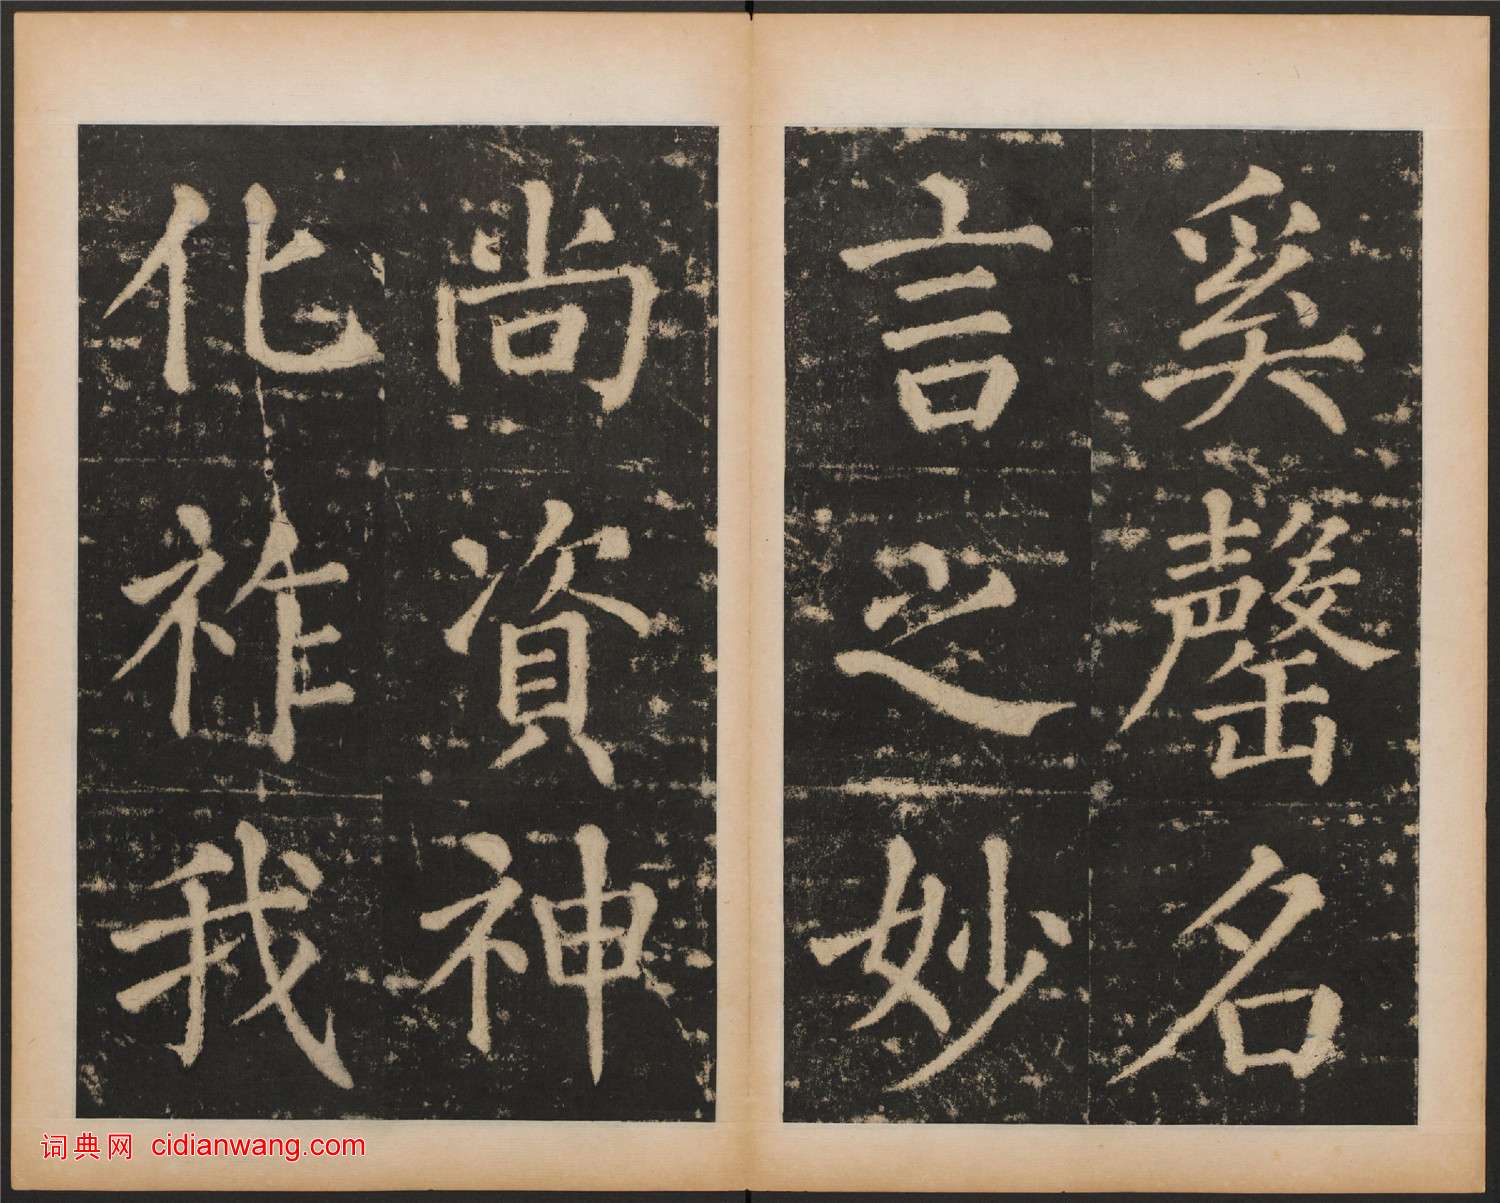 奚罄名
言之妙
尚資神
化祚我
词典网 cidianwang.com